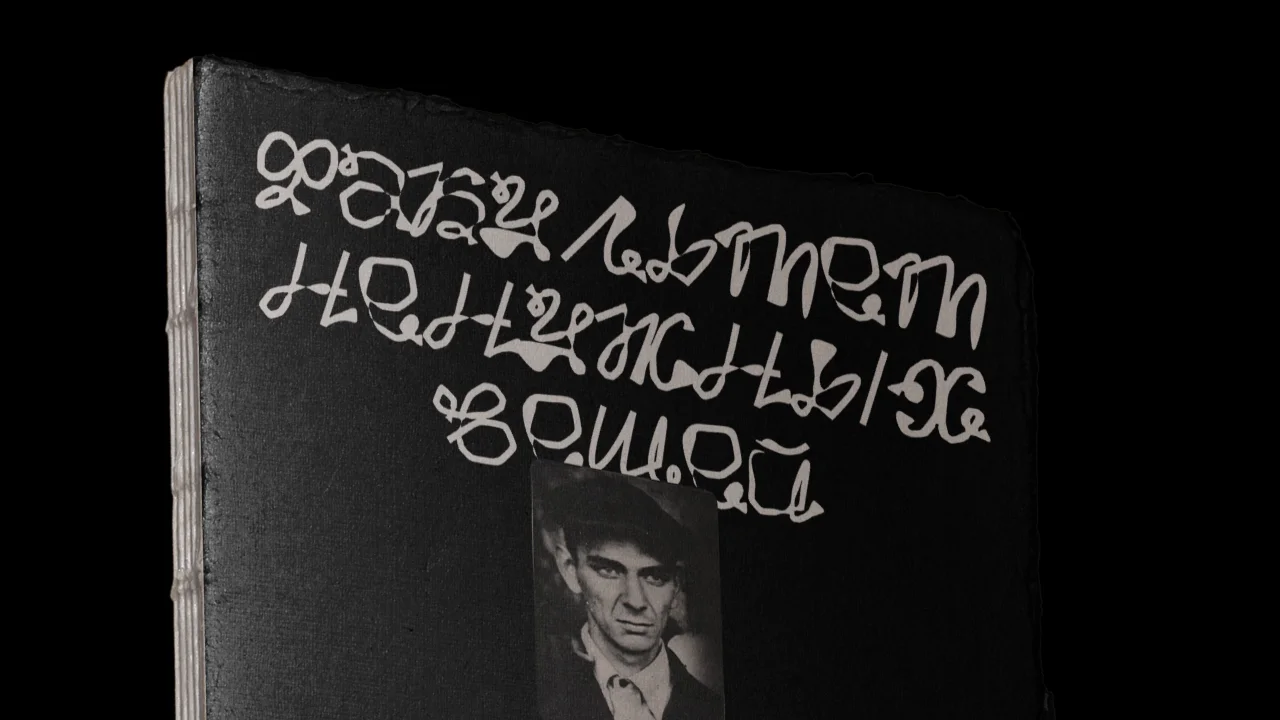 факультет
ненужных
вещей